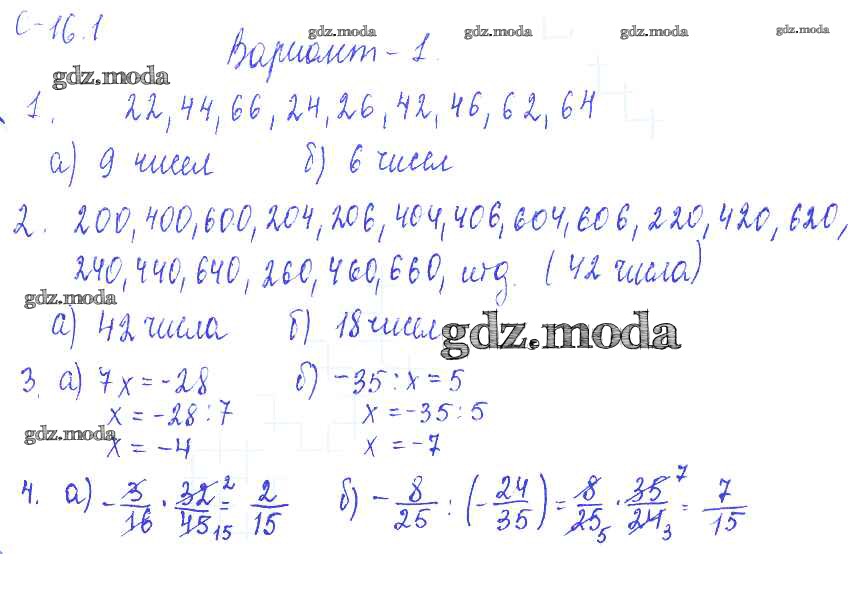 С-16.1
gdz.moda gdz.moda gdz.moda gdz.moda
Вариант-1.
gdz.moda
1. 22, 44, 66, 24, 26, 42, 46, 62, 64
а) 9 чисел б) 6 чисел
2. 200, 400, 600, 204, 206, 404, 406, 604, 606, 220, 420, 620,
240, 440, 640, 260, 460, 660, итд. (42 числа)
gdz.moda
а) 42 числа б) 18 чисел
gdz.moda
3. а) 7x = -28 б) -35 : x = 5
x = -28 : 7 x = -35 : 5
gdz.moda
x = -4 x = -7
4. а) -3/16 · 32/45 = 2/15 б) -8/25 : (-24/35) = 8/25 · 35/24 = 7/15